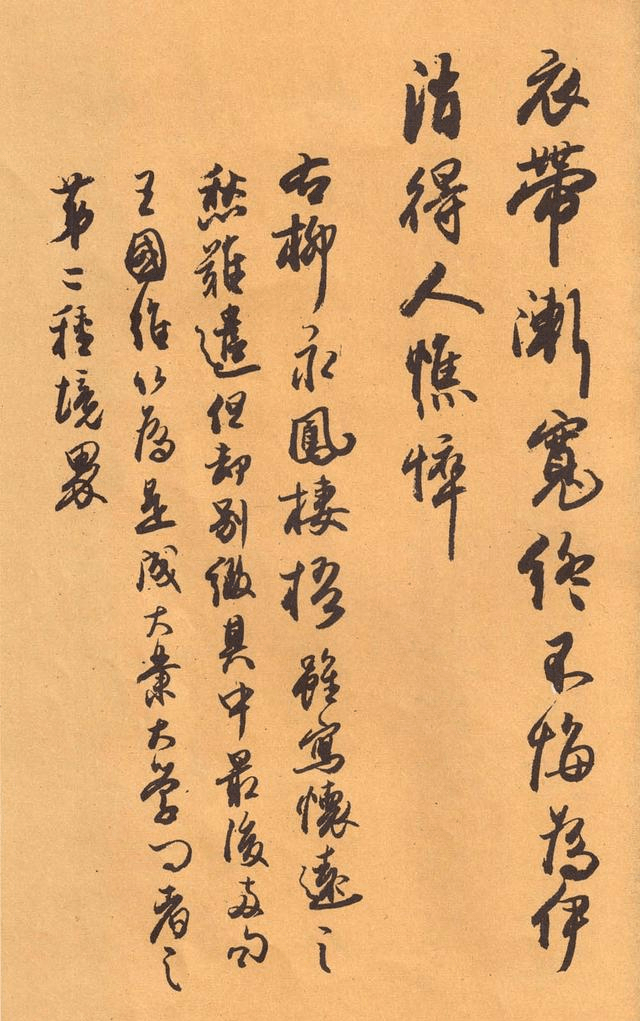 衣帶漸寬終不悔為伊
消得人憔悴
右柳永鳳棲梧雖寫懷遠之
愁難遣但却別緻其中最後兩句
王國維以為是成大業大學问者之
第二種境界